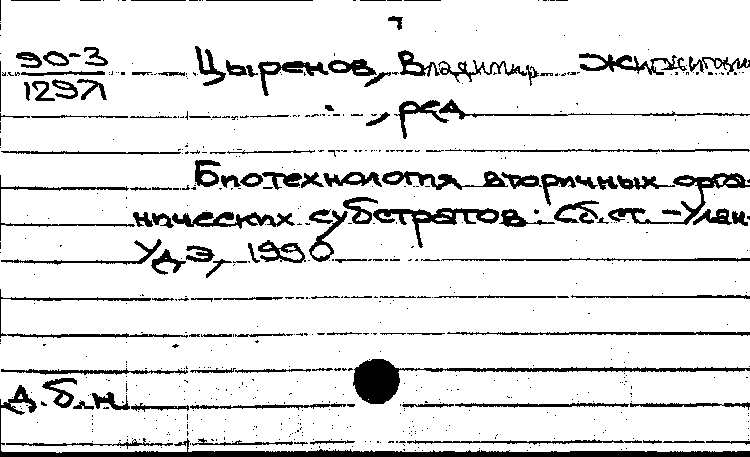 90-3
12971
Цыренов, Владимир Жигжитови
, ред
Биотехнология вторичных орга-
нических субстратов: Сб. ст. - Улан-
Удэ, 1990.
д.б.н.